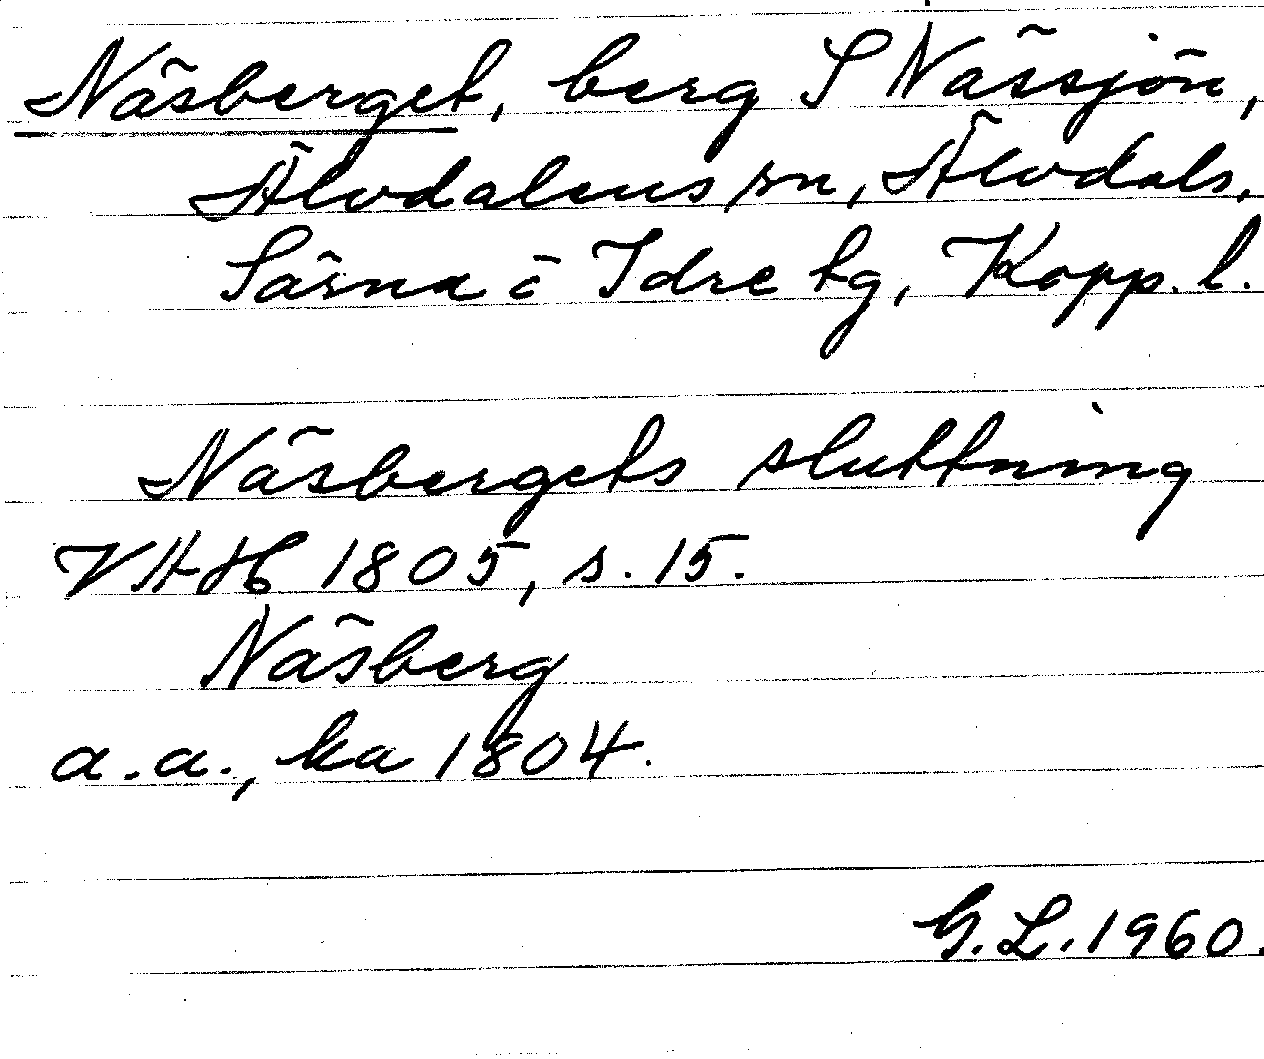 Näsberget, berg S Nässjön,
Älvdalens sn, Älvdals,
Särna o Idre tg, Kopp. l.
Näsbergets sluttning
VAH 1805, s. 15.
Näsberg
a.a., ka 1804.
G.L. 1960.